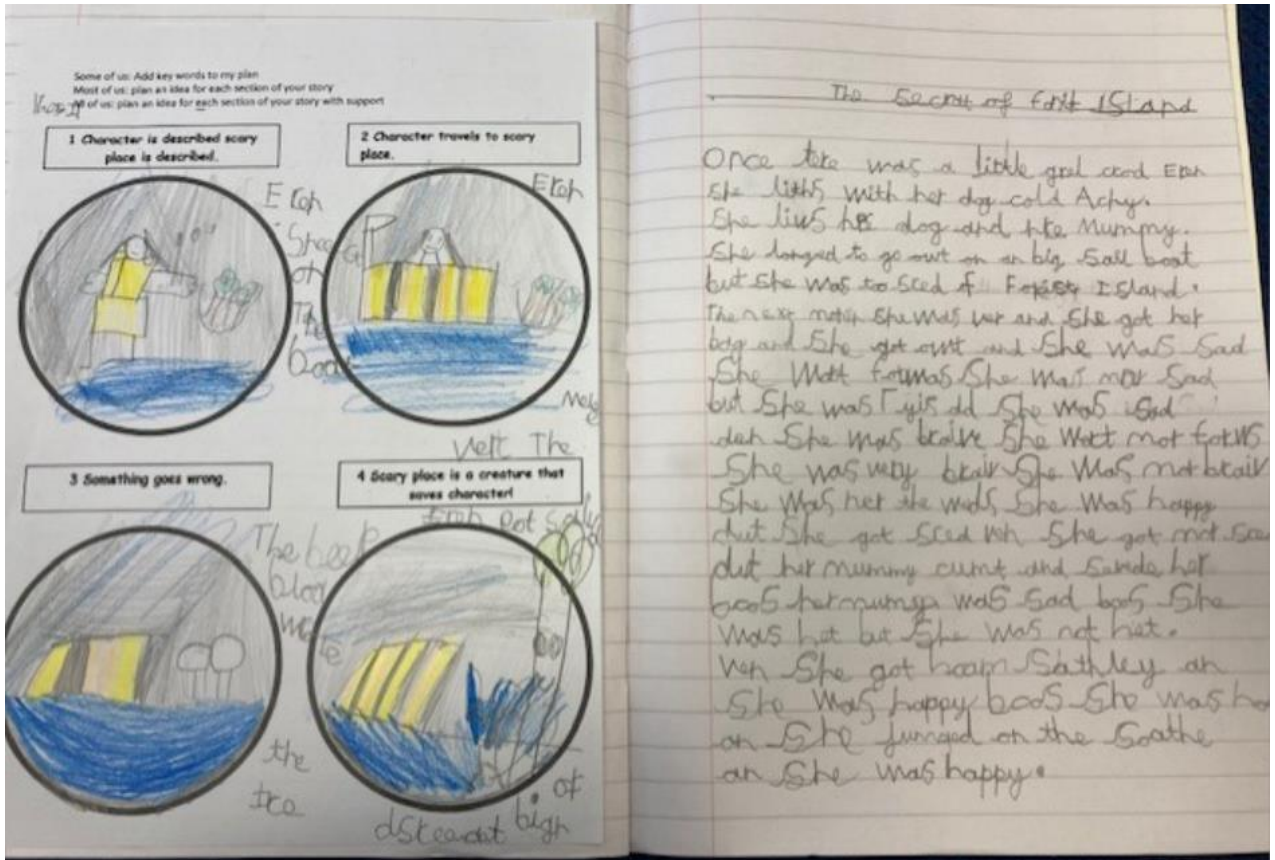 Some of us: Add key words to my plan
Most of us: plan an idea for each section of your story
All of us: plan an idea for each section of your story with support
1 Character is described scary
place is described.
2 Character travels to scary
place.
Eroh
on
The
boat
Eroh
vert The
3 Something goes wrong.
4 Scary place is a creature that
saves character!
The
the
tree
Eroh
of
big
The Secret of Forit ISland
Once tere was a little grel Eroh
She liths with her dog cold Achy.
She livs her dog and hre Mummy.
She longed to go out on an big Sall boat
but She was to Sced of Forist ISland.
The next She was ver and She got her
bag and She got owt and She was Sad
She Wott forwas She was not Sad
but She was She was Sad
deh She was braive She Wott not forws
She was very brair She was not brair
She was her the wods, She was happy
dut She got Sced wh She got not Sce
dut her mummy cumt and Savde her
becos her mumy was Sad boos She
was het but She was not het.
Ven She got hoam Sathley an
She was happy boos She was ho
an She jumped on the Soathe
an She was happy.